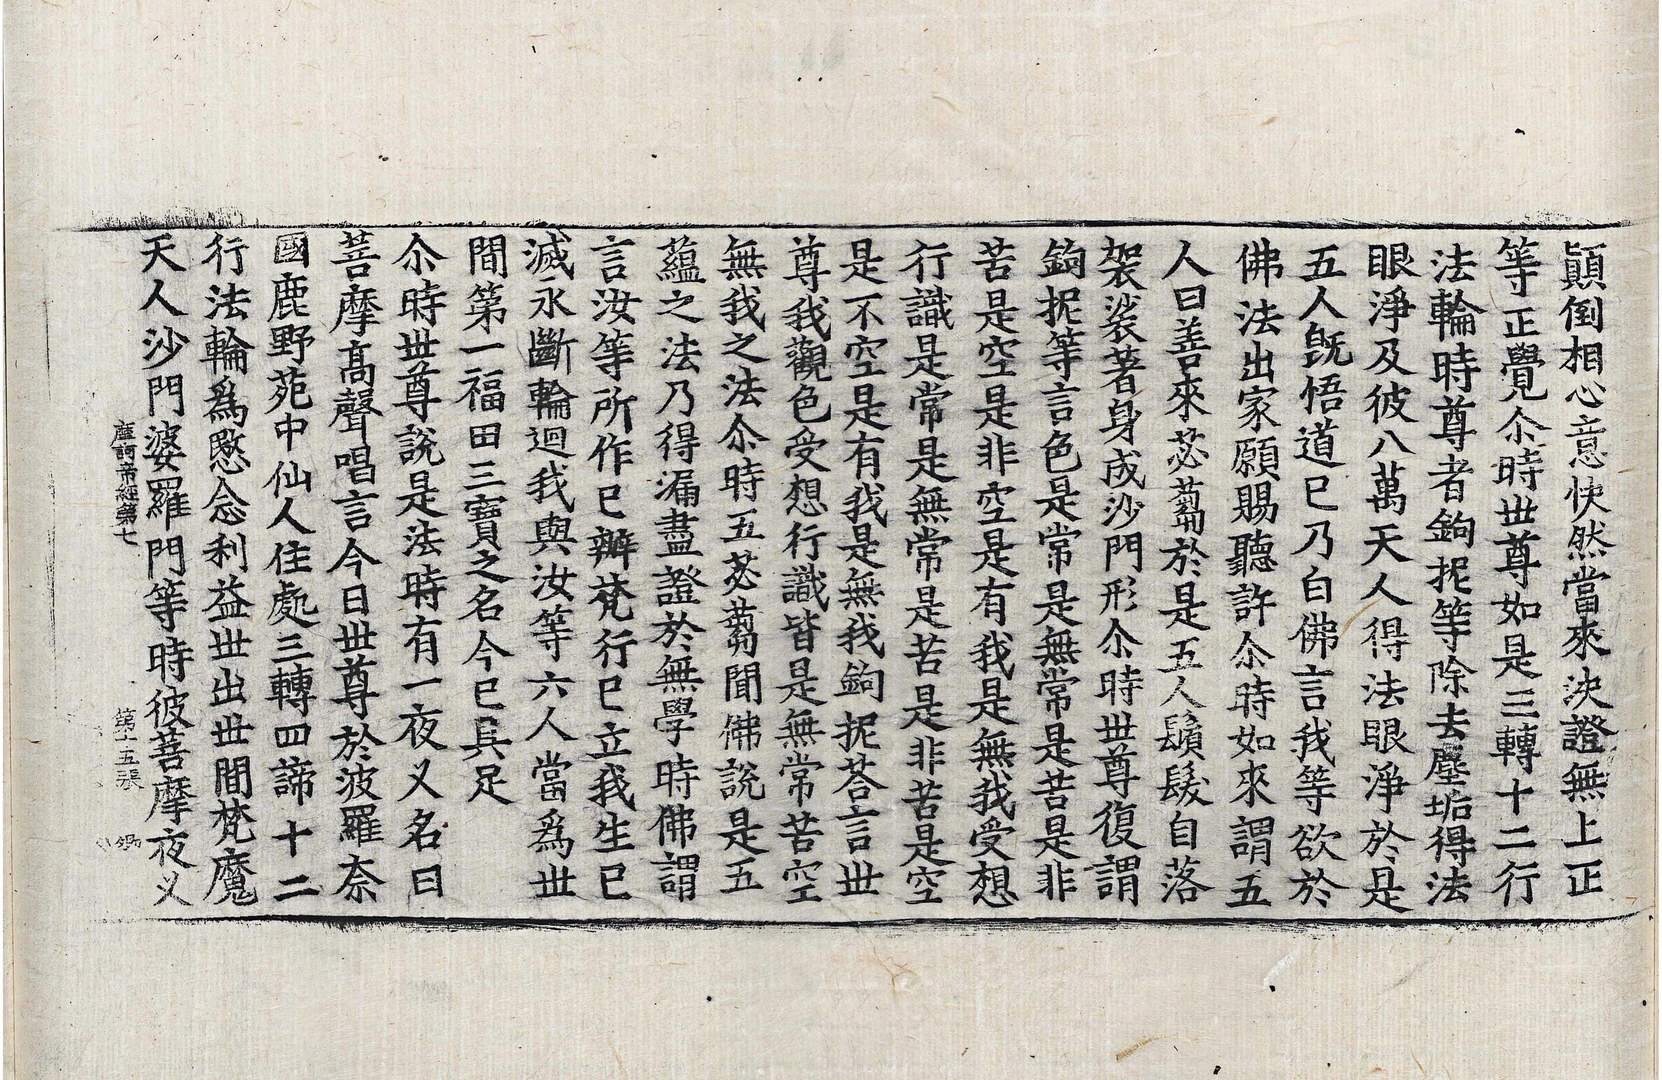 顚倒相心意快然當來決證無上正
等正覺尒時丗尊如是三轉十二行
法輪時尊者鉤抳等除去塵垢得法
眼淨及彼八萬天人得法眼淨於是
五人旣悟道已乃白佛言我等欲於
佛法出家願賜聽許尒時如來謂五
人曰善來苾蒭於是五人鬚髮自落
袈裟著身成沙門形尒時丗尊復謂
鉤抳等言色是常是無常是苦是非
苦是空是非空是有我是無我受想
行識是常是無常是苦是非苦是空
是不空是有我是無我鉤抳荅言丗
尊我觀色受想行識皆是無常苦空
無我之法尒時五苾蒭聞佛說是五
蘊之法乃得漏盡證於無學時佛謂
言汝等所作已辦梵行已立我生已
滅永斷輪迴我與汝等六人當爲丗
間第一福田三寶之名今已具足
尒時丗尊說是法時有一夜叉名曰
菩摩高聲唱言今日丗尊於波羅奈
國鹿野苑中仙人住處三轉四諦十二
行法輪爲愍念利益丗出丗間梵魔
天人沙門婆羅門等時彼菩摩夜叉
摩訶帝經第七 第十五張